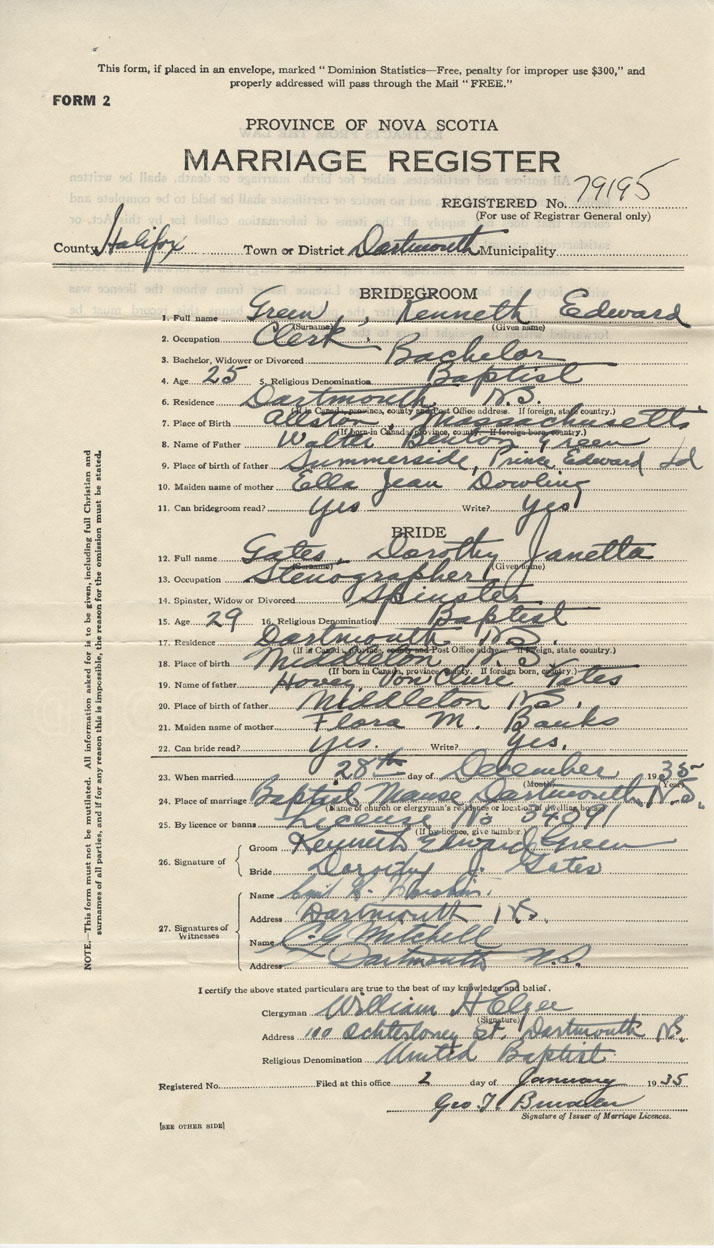 This form, if placed in an envelope, marked "Dominion Statistics—Free, penalty for improper use $300," and
properly addressed will pass through the Mail "FREE."
FORM 2
PROVINCE OF NOVA SCOTIA
MARRIAGE REGISTER
REGISTERED No. 79195
(For use of Registrar General only)
County Halifax Town or District Dartmouth Municipality
BRIDEGROOM
1. Full name Green, Kenneth Edward
(Surname) (Given name)
2. Occupation Clerk
3. Bachelor, Widower or Divorced Bachelor
4. Age 25 5. Religious Denomination Baptist
6. Residence Dartmouth, N.S.
(If in Canada, province, county and Post Office address. If foreign, state country.)
7. Place of Birth Allston, Massachusetts
(If born in Canada, province, county. If foreign born, country.)
8. Name of Father Walter Benton Green
9. Place of birth of father Summerside, Prince Edward Id
10. Maiden name of mother Ella Jean Dowling
11. Can bridegroom read? Yes Write? Yes
BRIDE
12. Full name Gates, Dorothy Janetta
(Surname) (Given name)
13. Occupation Stenographer
14. Spinster, Widow or Divorced Spinster
15. Age 29 16. Religious Denomination Baptist
17. Residence Dartmouth N.S.
(If in Canada, province, county and Post Office address. If foreign, state country.)
18. Place of birth Middleton N.S.
(If born in Canada, province, county. If foreign born, country.)
19. Name of father Gates
20. Place of birth of father Middleton N.S.
21. Maiden name of mother Flora M. Banks
22. Can bride read? Yes. Write? Yes.
23. When married 28th day of December 1935
(Month) (Year)
24. Place of marriage Baptist Manse Dartmouth, N.S.
(Name of church or clergyman's residence or location of dwelling house)
25. By licence or banns License No 34091
(If by licence, give number)
26. Signature of
Groom Kenneth Edward Green
Bride Dorothy J. Gates
27. Signatures of
Witnesses
Name
Address Dartmouth N.S.
Name C. G. Mitchell
Address Dartmouth N.S.
I certify the above stated particulars are true to the best of my knowledge and belief.
Clergyman William H Elgee
(Signature)
Address 100 Ochterloney St. Dartmouth N.S.
Religious Denomination United Baptist
Registered No. Filed at this office 2 day of January 1935
Geo T.
Signature of Issuer of Marriage Licences.
[SEE OTHER SIDE]
NOTE.—This form must not be mutilated. All information asked for is to be given, including full Christian and
surnames of all parties, and if for any reason this is impossible, the reason for the omission must be stated.